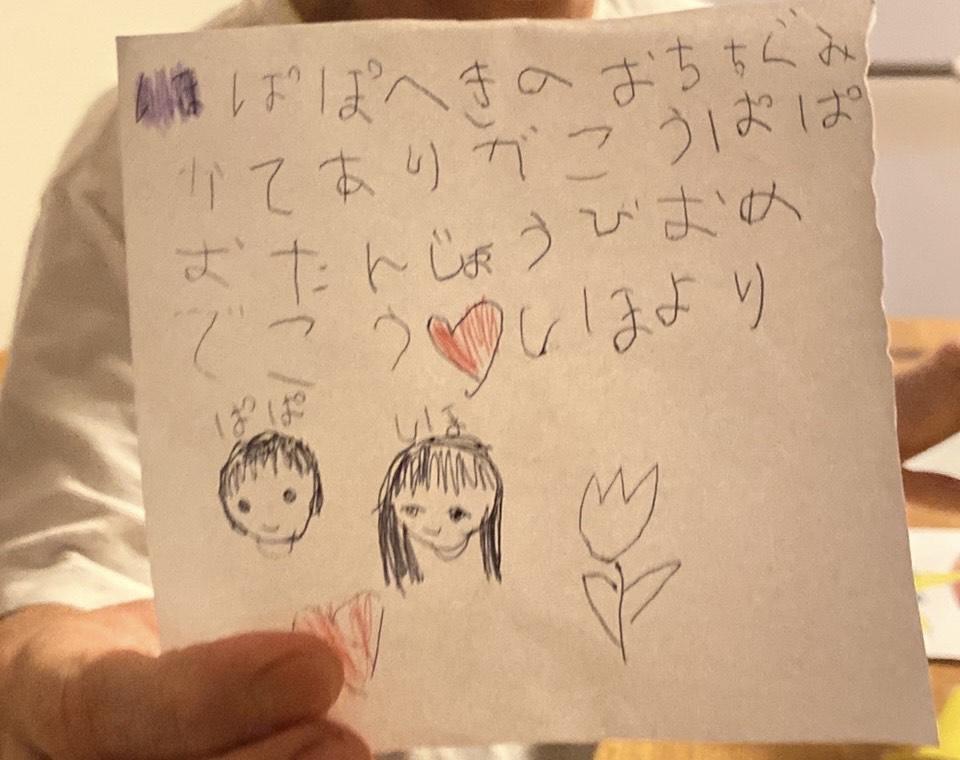 ぱぱへきのおちちぐみ
かてありがこうぱぱ
おたんじょうびおめ
でこう しほより
ぱぱ しほ